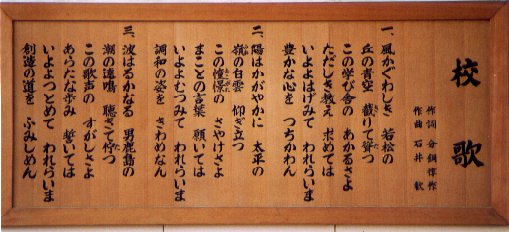 校歌
作詞 分銅惇作
作曲 石井歓
一、風かぐわしき 若松の
丘の青空 截りて聳つ
この学び舎の あかるさよ
ただしき教え 求めては
いよよはげみて われらいま
豊かな心を つちかわん
二、陽はかがやかに 太平の
嶺の白雲 仰ぎ立つ
この憧憬の さやけさよ
まことの言葉 願いては
いよよむつみて われらいま
調和の姿を きわめなん
三、波はるかなる 男鹿島の
潮の遠鳴 聴きて佇つ
この歌声の すがしさよ
あらたな歩み 誓いては
いよよつとめて われらいま
創造の道を ふみしめん